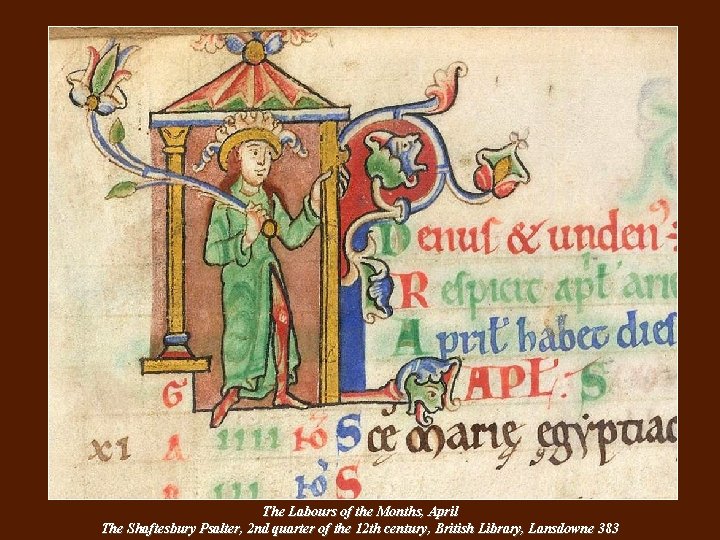 Denuſ & undenꝰ
Reſpicit apł' arie
Aprił' habet dieſ
KL APŁ: S
G
XI A IIII ıó S cē Marie egyptiac
B IIII ıó S
The Labours of the Months, April
The Shaftesbury Psalter, 2nd quarter of the 12th century, British Library, Lansdowne 383